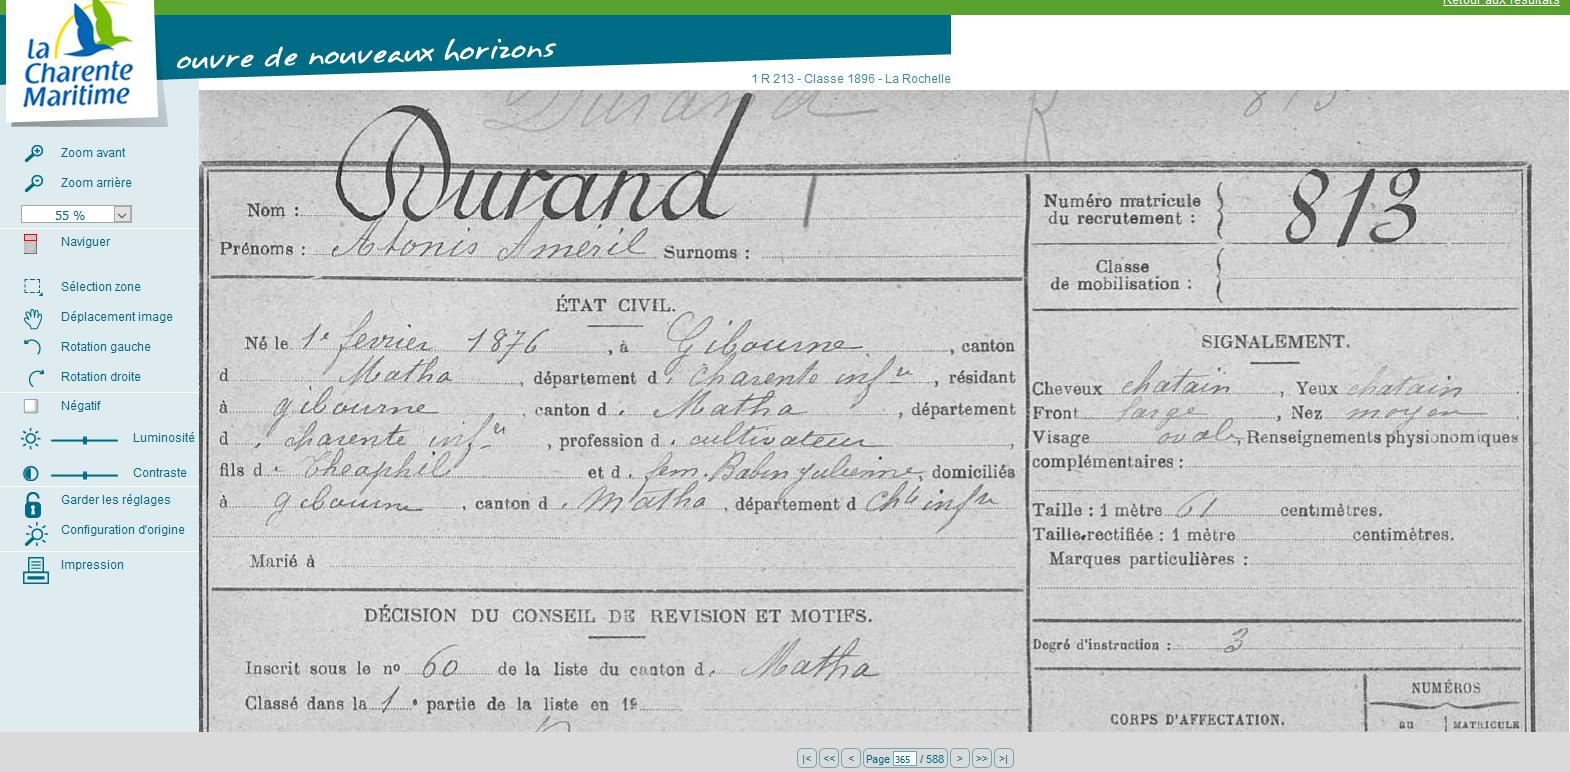 Retour aux résultats
la
Charente
Maritime
ouvre de nouveaux horizons
1 R 213 - Classe 1896 - La Rochelle
Zoom avant
Zoom arrière
55 %
Naviguer
Sélection zone
Déplacement image
Rotation gauche
Rotation droite
Négatif
Luminosité
Contraste
Garder les réglages
Configuration d'origine
Impression
Durand 813
Nom : Durand
Prénoms : Astonis Améril Surnoms :
ÉTAT CIVIL.
Né le 1er fevrier 1876, à Gibourne, canton
d Matha, département d. charente infre, résidant
à gibourne, canton d. Matha, département
d. charente infre, profession d. cultivateur,
fils d. Théophil et d. fem. Babin Julienne, domiciliés
à gibourne, canton d. Matha, département d chte infre
Marié à
DÉCISION DU CONSEIL DE REVISION ET MOTIFS.
Inscrit sous le nº 60 de la liste du canton d. Matha
Classé dans la 1e partie de la liste en 19
Numéro matricule
du recrutement : 813
Classe
de mobilisation :
SIGNALEMENT.
Cheveux chatain, Yeux chatain.
Front large, Nez moyen.
Visage ovale, Renseignements physionomiques
complémentaires :
Taille : 1 mètre 61 centimètres.
Taille rectifiée : 1 mètre centimètres.
Marques particulières :
Degré d'instruction : 3
CORPS D'AFFECTATION.
NUMÉROS
au MATRICULE
|< << < Page 365 / 588 > >> >|